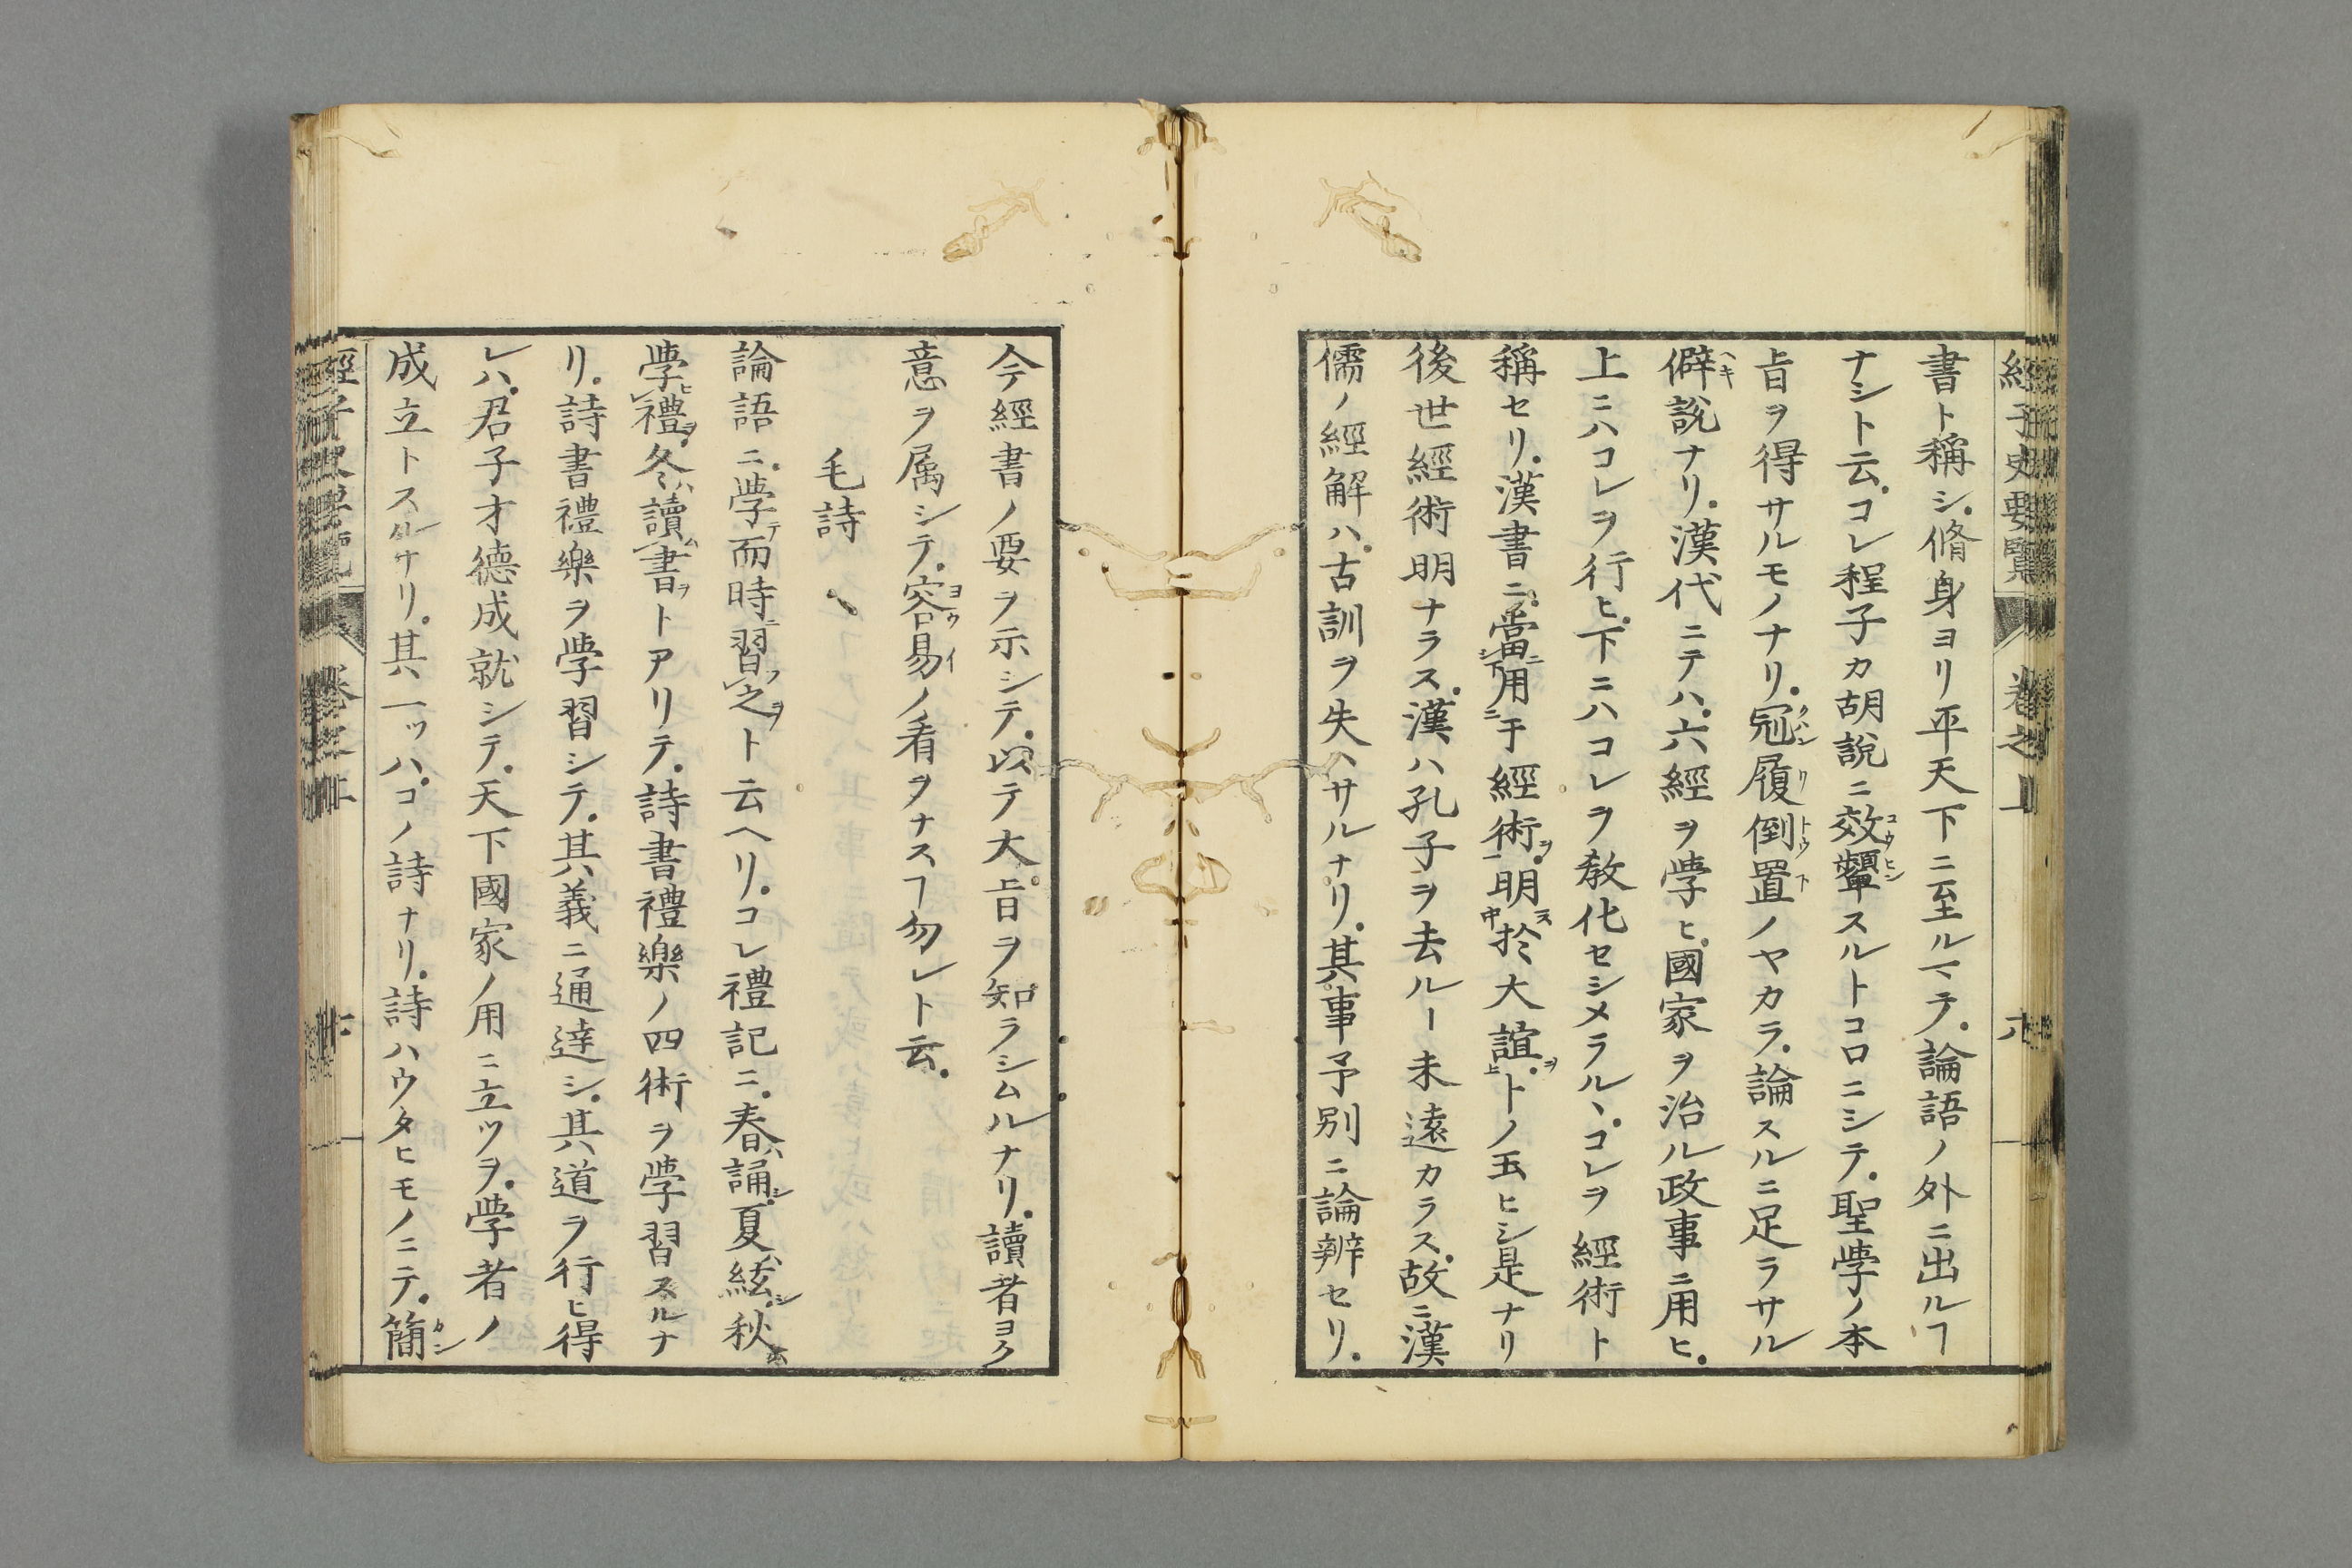 經子史要覽 卷之上
書ト稱シ。脩身ヨリ平天下ニ至ルマテ。論語ノ外ニ出ルヿ
ナシト云。コレ程子カ胡說ニ效顰スルトコロニシテ。聖學ノ本
旨ヲ得サルモノナリ。冠履倒置ノヤカラ。論スルニ足ラサル
僻說ナリ。漢代ニテハ。六經ヲ學ヒ。國家ヲ治ル政事ニ用ヒ。
上ニハコレヲ行ヒ。下ニハコレヲ教化セシメラル、。コレヲ經術ト
稱セリ。漢書ニ。當用于經術。明於大誼。トノ玉ヒシ是ナリ
後世經術明ナラス。漢ハ孔子ヲ去ルー未遠カラス。故ニ漢
儒ノ經解ハ。古訓ヲ失ヘサルナリ。其事予別ニ論辨セリ。
今經書ノ要ヲ示シテ。以テ大旨ヲ知ラシムルナリ。讀者ヨク
意ヲ属シテ。容易ノ看ヲナスヿ勿レト云。
毛詩
論語ニ。學而時習之ト云ヘリ。コレ禮記ニ。春誦。夏絃。秋
學禮。冬讀書トアリテ。詩書禮樂ノ四術ヲ學習スルナ
リ。詩書禮樂ヲ學習シテ。其義ニ通達シ。其道ヲ行ヒ得
レハ。君子才德成就シテ。天下國家ノ用ニ立ツヲ。學者ノ
成立トスルナリ。其一ッハ。コノ詩ナリ。詩ハウタヒモノニテ。簡